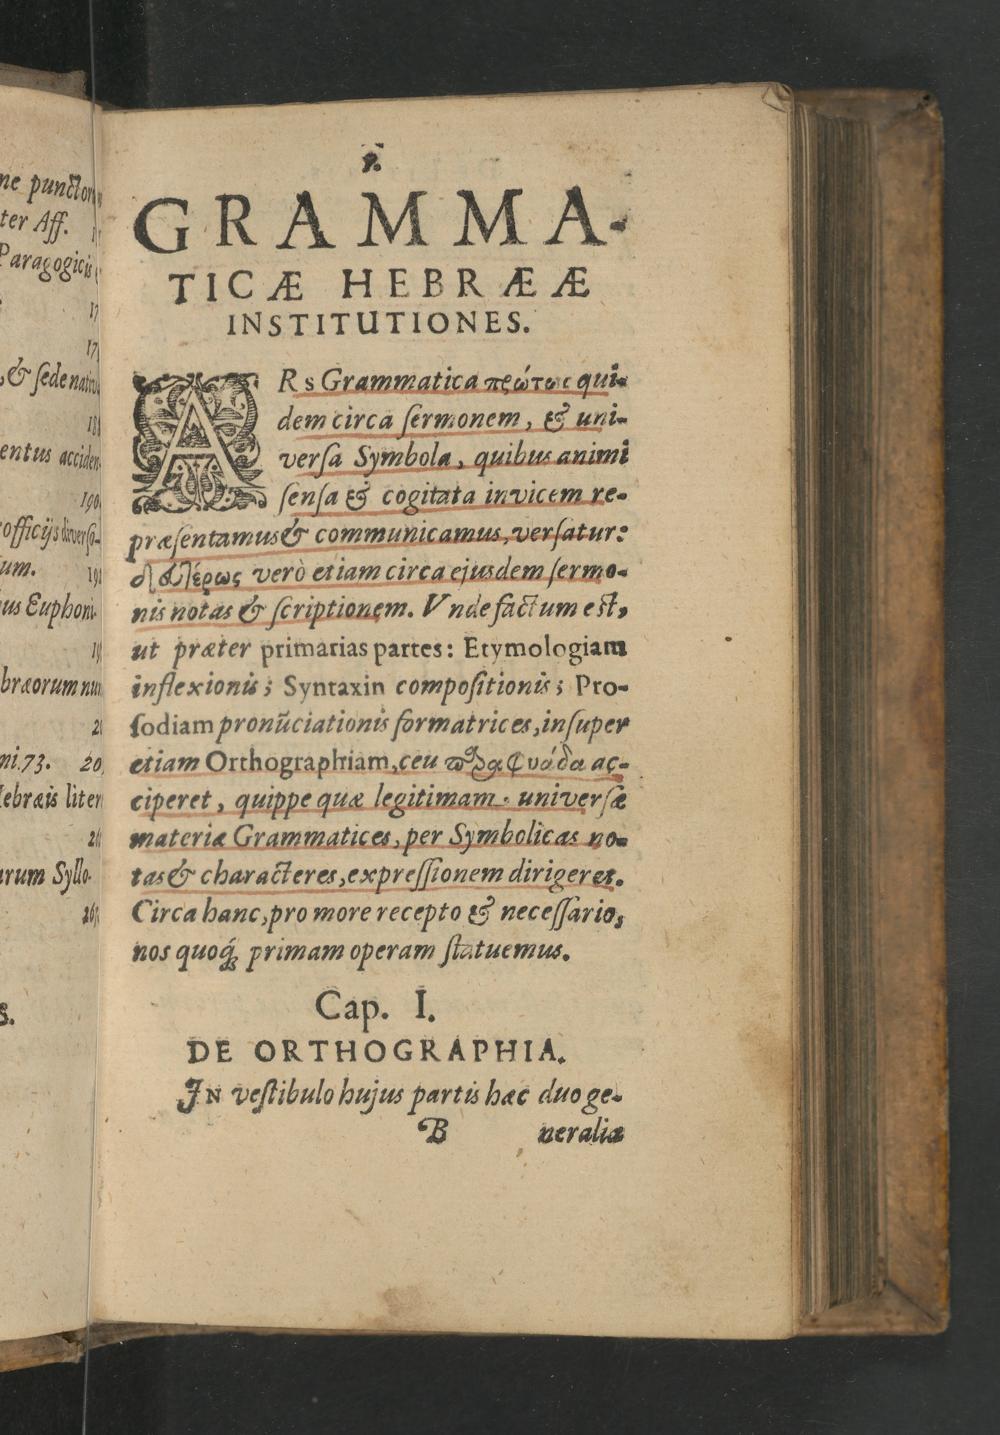 ne punctor
ter Aff.
Paragogicis
17
17
, & ſede nativa
18
entus acciden
190
officijs diverſo-
um. 191
us Euphoni-
19
bræorum num
2
ni. 73. 20
ebræis liter
2
arum Syllo-
26
S.
1.
GRAMMA-
TICÆ HEBRÆÆ
INSTITUTIONES.
ARs Grammatica πρώτως qui-
dem circa ſermonem, & uni-
verſa Symbola, quibus animi
ſenſa & cogitata invicem re-
præſentamus & communicamus, verſatur:
δευτέρως verò etiam circa ejusdem ſermo-
nis notas & ſcriptionem. Vnde factum eſt,
ut præter primarias partes: Etymologiam
inflexionis; Syntaxin compoſitionis; Pro-
ſodiam pronũciationis formatrices, inſuper
etiam Orthographiam, ceu αc-
ciperet, quippe quæ legitimam universæ
materiæ Grammatices, per Symbolicas no-
tas & characteres, expreſſionem dirigeret.
Circa hanc, pro more recepto & neceſſario,
nos quoq́; primam operam ſtatuemus.
Cap. I.
DE ORTHOGRAPHIA.
IN veſtibulo hujus partis hæc duo ge-
B neralia